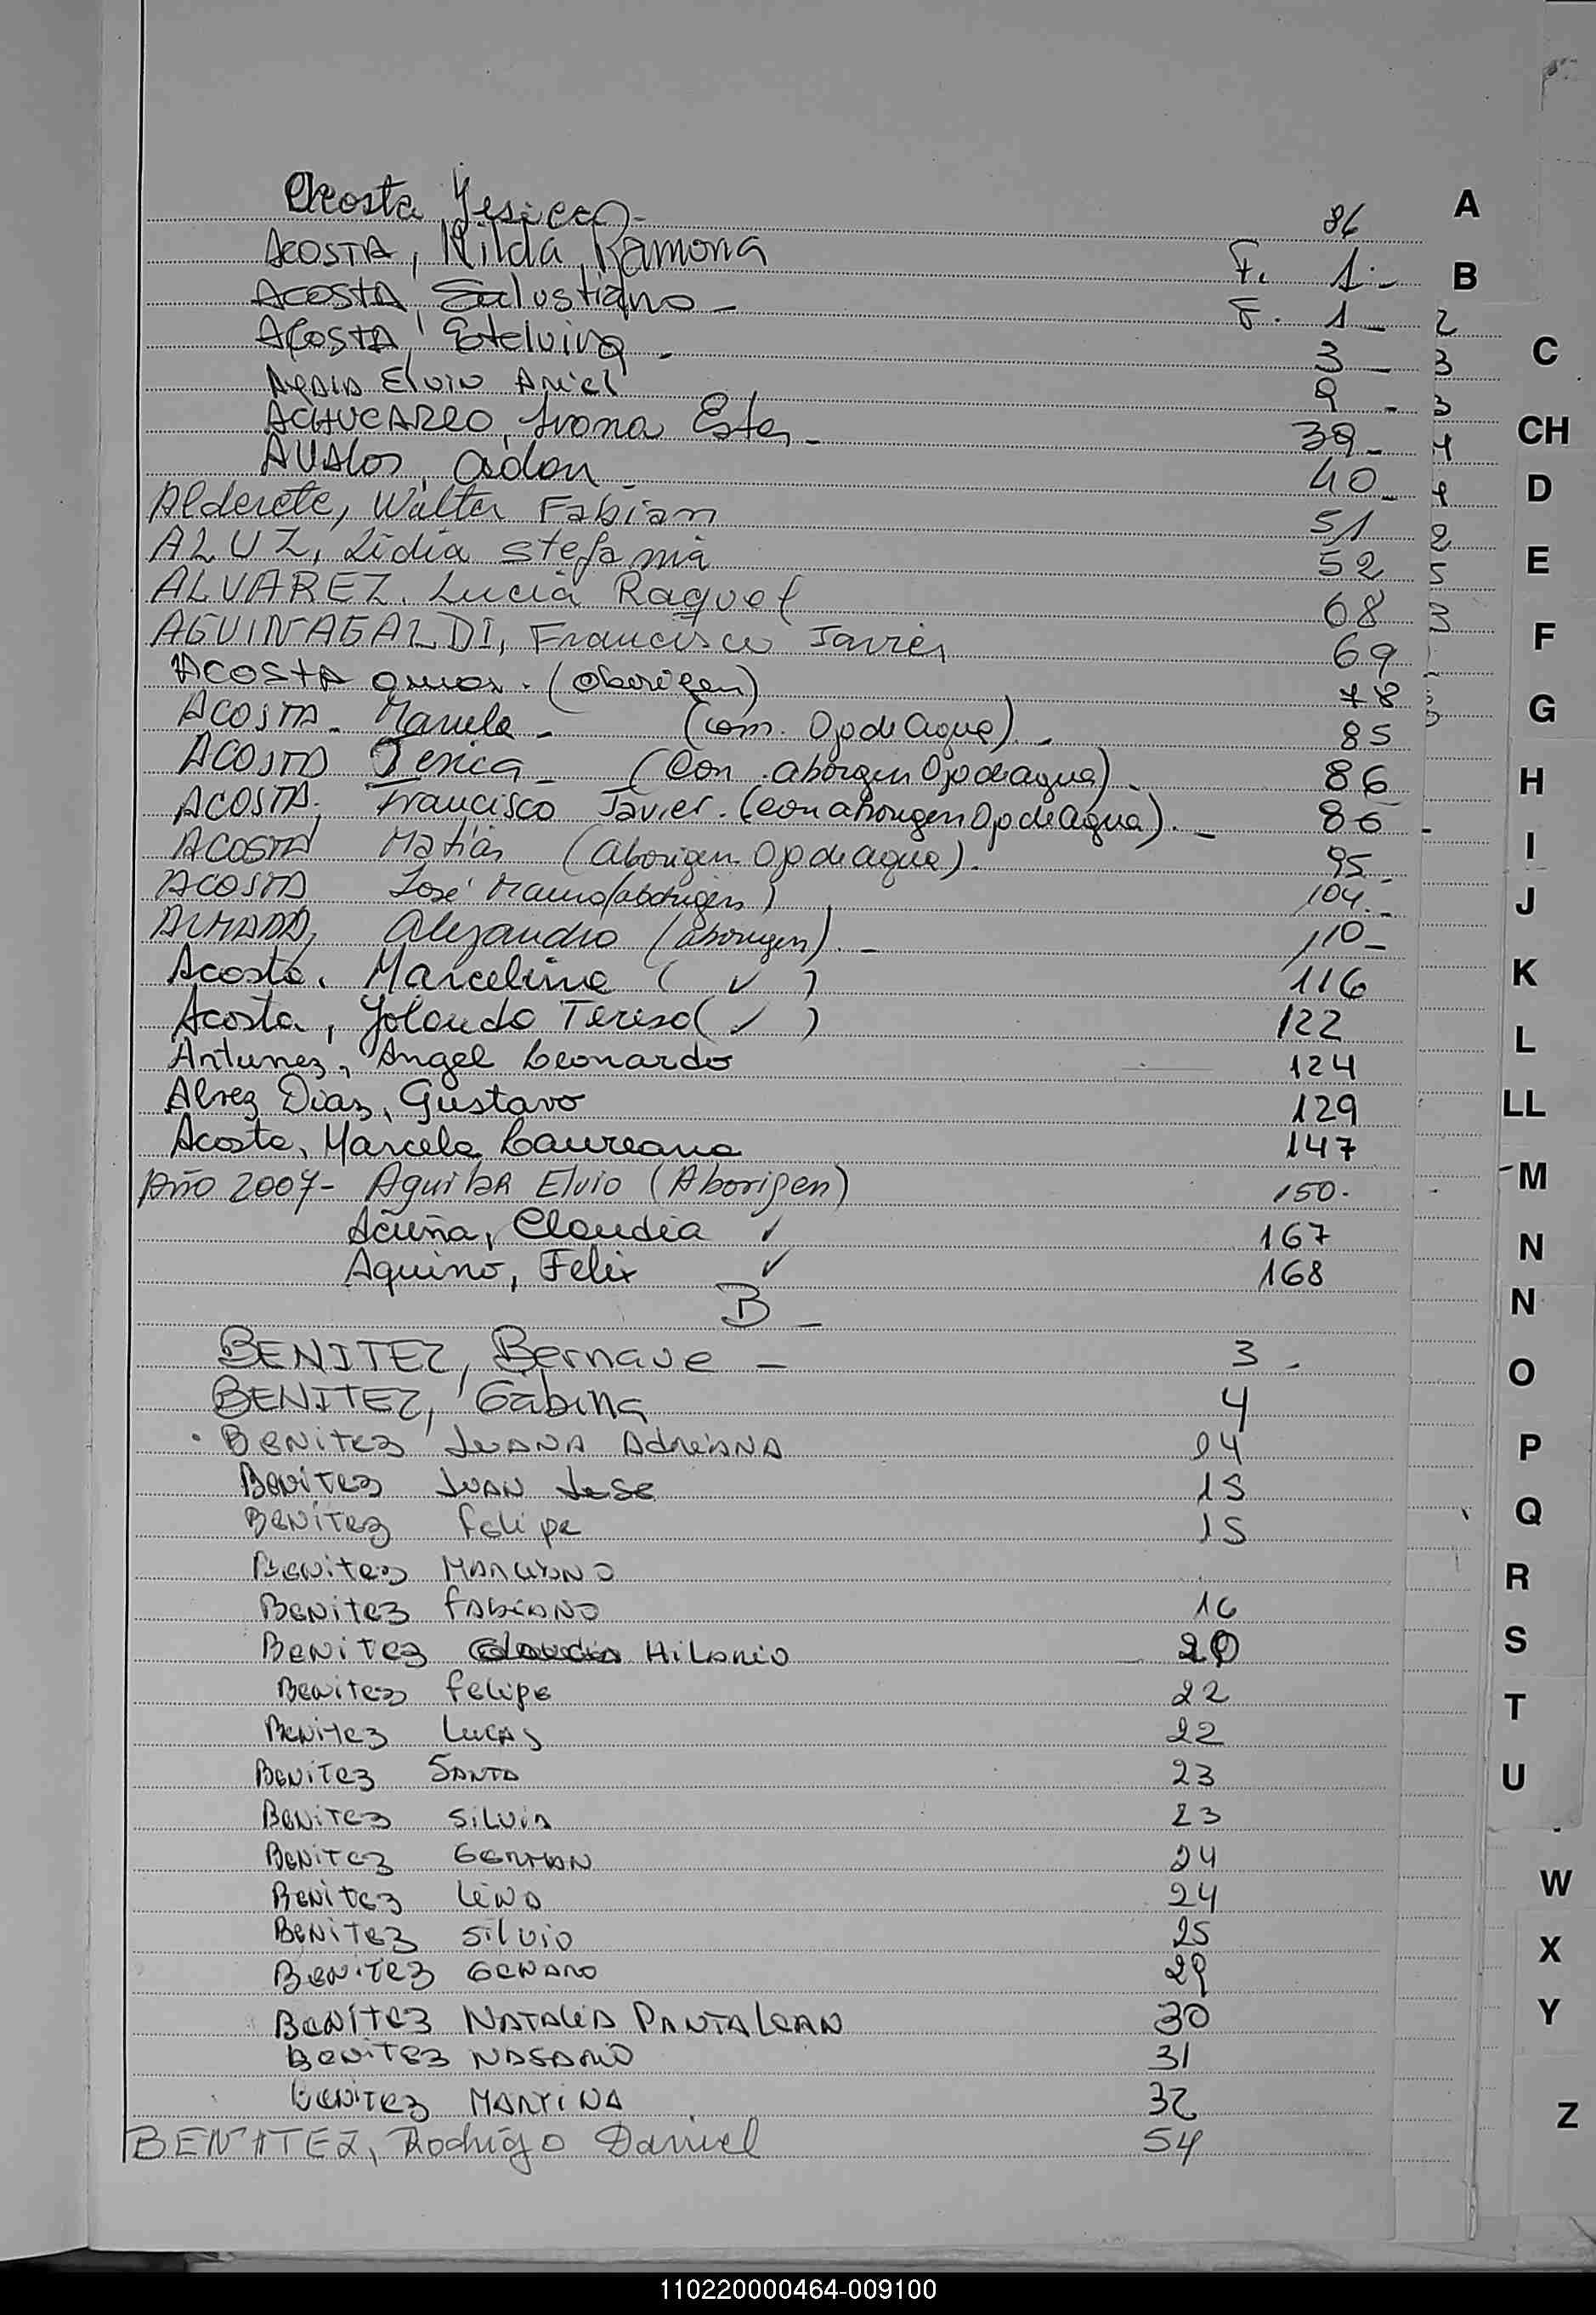 Acosta Yesica 86
ACOSTA, Nilda Ramona F. 1.-
ACOSTA Salustiano - F. 1 -
ACOSTA, Etelvina - 3 -
Elvio Ariel 9 -
ACHUCARRO, Ivona Ester - 39 -
AVALOS, Adon - 40 -
Alderete, Walter Fabian 51
ALUZ, Lidia Stefania 52
ALVAREZ. Lucia Raquel 68
AGUINAGALDI, Francisco Javier 69
ACOSTA Omar. (Aborigen) 78
ACOSTA - Mariela - (com. Ojo de Agua). - 85
ACOSTA Jesica - (Com. aborigen Ojo de agua). 86
ACOSTA, Francisco Javier. (com aborigen Ojo de Agua). - 86
ACOSTA Matías (Aborigen Ojo de Agua). 95 -
ACOSTA José Mauro (aborigen) 104. -
ALMADA, Alejandro (aborigen). - 110 -
Acosta, Marcelina ( ✓ ) 116
Acosta, Yolanda Teresa ( ✓ ) 122
Antunez, Angel Leonardo 124
Alvez Diaz, Gustavo 129
Acosta, Marcela Laureana 147
Año 2007 - Aguilar Elvio (Aborigen) 150.
Acuña, Claudia ✓ 167
Aquino, Felix ✓ 168
B -
BENITEZ, Bernave - 3 -
BENITEZ, Gabina 4
Benitez Juana Adriana 14
Benitez Juan Jose 15
Benitez Felipe 15
Benitez Marciano
Benitez Fabiano 16
Benitez Hilario 20
Benitez Felipe 22
Benitez Lucas 22
Benitez Santa 23
Benitez Silvia 23
Benitez German 24
Benitez Lino 24
Benitez Silvio 25
Benitez Genaro 29
Benitez Natalia Pantalean 30
Benitez Nasario 31
Benitez Martina 32
BENITEZ, Rodrigo Daniel 54
A
B
C
CH
D
E
F
G
H
I
J
K
L
LL
M
N
N
O
P
Q
R
S
T
U
W
X
Y
Z
110220000464-009100